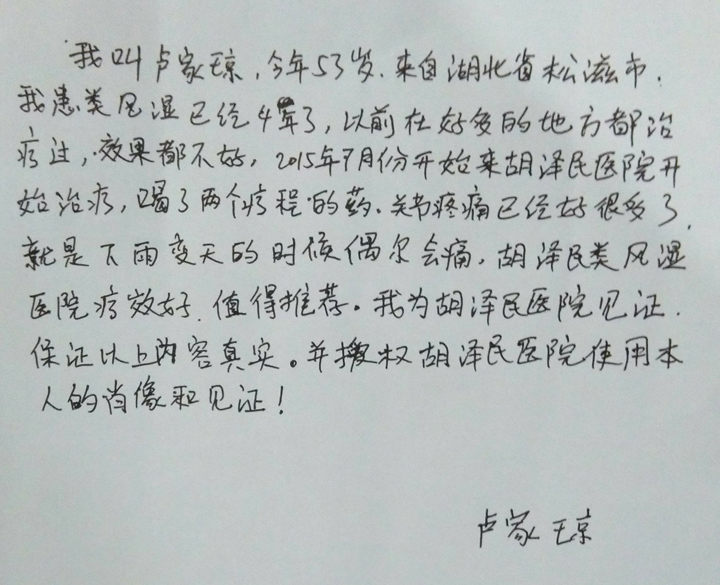 我叫卢家琼,今年53岁.来自湖北省松滋市.
我患类风湿已经4年了,以前在好多的地方都治
疗过,效果都不好,2015年7月份开始来胡泽民医院开
始治疗,喝了两个疗程的药.关节疼痛已经好很多了,
就是下雨变天的时候偶尔会痛.胡泽民类风湿
医院疗效好.值得推荐。我为胡泽民医院见证.
保证以上内容真实。并授权胡泽民医院使用本
人的肖像和见证!
卢家琼